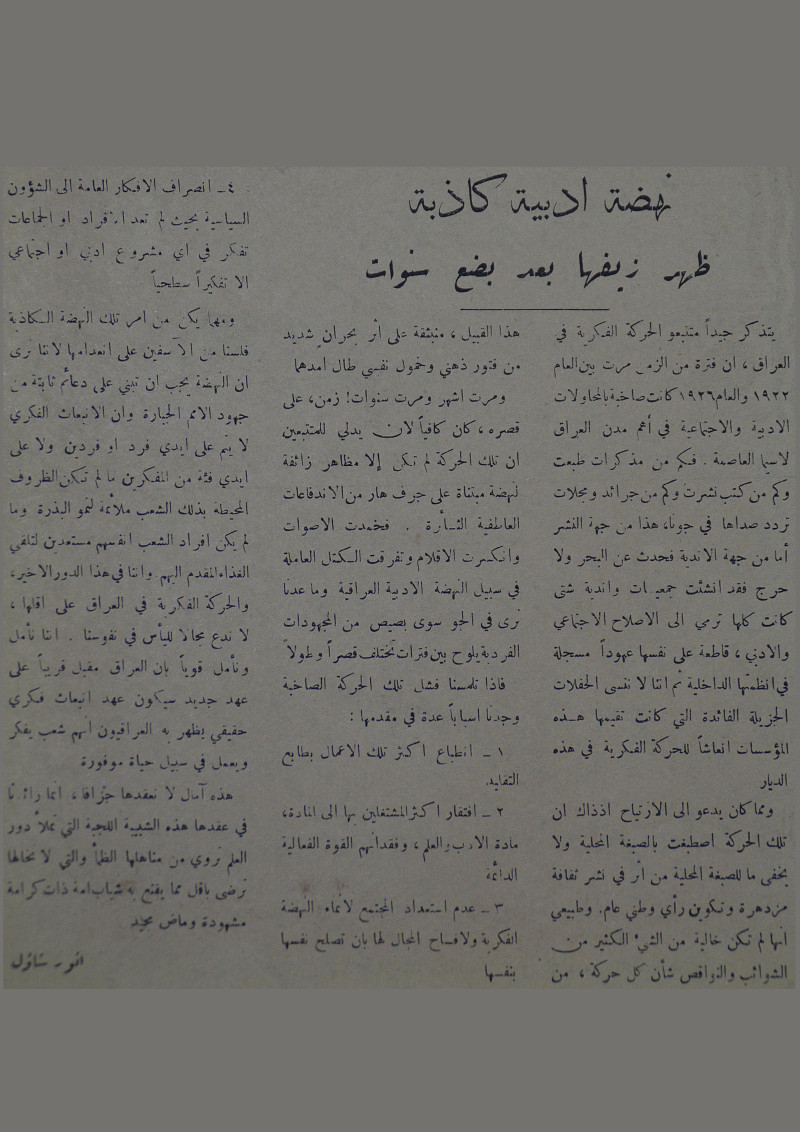 نهضة ادبية كاذبة
ظهر زيفها بعد بضع سنوات
يتذكر جيداً متتبعو الحركة الفكرية في
العراق ، ان فترة من الزمن مرت بين العام
١٩٢٢ والعام ١٩٢٦ كانت صاخبة بالمحاولات
الادبية والاجتماعية في أهم مدن العراق
لاسيما العاصمة . فكم من مذكرات طبعت
وكم من كتب نشرت وكم من جرائد ومجلات
تردد صداها في جونا، هذا من جهة النشر
أما من جهة الاندية فحدث عن البحر ولا
حرج فقد انشئت جمعيات واندية شتى
كانت كلها ترمي الى الاصلاح الاجتماعي
والادبي ، قاطعة على نفسها عهوداً مسجلة
في انظمتها الداخلية ثم اننا لا ننسى الحفلات
الجزيلة الفائدة التي كانت تقيمها هذه
المؤسسات انعاشاً للحركة الفكرية في هذه
الديار
ومما كان يدعو الى الارتياح اذذاك ان
تلك الحركة اصطبغت بالصبغة المحلية ولا
يخفى ما للصبغة المحلية من أثر في نشر ثقافة
مزدهرة وتكوين رأي وطني عام. وطبيعي
انها لم تكن خالية من الشيء الكثير من
الشوائب والنواقص شأن كل حركة ، من
هذا القبيل ، منبثقة على أثر بحرانٍ شديد
من فتور ذهني وخمول نفسي طال امدهما
ومرت اشهر ومرت سنوات! زمن، على
قصره ، كان كافياً لان يدلي للمتتبعين
ان تلك الحركة لم تكن إلا مظاهر زائفة
لنهضة مبتناة على جرف هار من الاندفاعات
العاطفية الثائرة . فخمدت الاصوات
وانكسرت الاقلام وتفرقت الكتل العاملة
في سبيل النهضة الادبية العراقية وما عدنا
نرى في الجو سوى بصيص من المجهودات
الفردية يلوح بين فترات تختلف قصراً وطولاً
فاذا تلمسنا فشل تلك الحركة الصاخبة
وجدنا اسباباً عدة في مقدمها :
١ ــ انطباع اكثر تلك الاعمال بطابع
التقليد
٢ ــ افتقار اكثر المشتغلين بها الى المادة،
مادة الادب والعلم ، وفقدانهم القوة الفعالية
الدائمة
٣ ــ عدم استعداد المجتمع لانماء النهضة
الفكرية ولافساح المجال لها بان تصلح نفسها
بنفسها
٤ ــ انصراف الافكار العامة الى الشؤون
السياسية بحيث لم تعد الافراد او الجماعات
تفكر في اي مشروع ادبي او اجتماعي
الا تفكيراً سطحياً
ومهما يكن من امر تلك النهضة الكاذبة
فلسنا من الآسفين على انعدامها لاننا نرى
ان النهضة يجب ان تبنى على دعائم ثابتة من
جهود الامم الجبارة وان الانبعاث الفكري
لا يتم على ايدي فرد او فردين ولا على
ايدي فئة من المفكرين ما لم تكن الظروف
المحيطة بذلك الشعب ملائمة لنمو البذرة وما
لم يكن افراد الشعب انفسهم مستعدين لتلقي
الغذاء المقدم اليهم. واننا في هذا الدور الاخير،
والحركة الفكرية في العراق على اقلها ،
لا ندع مجالا لليأس في نفوسنا . اننا نأمل
ونأمل قوياً بان العراق مقبل قريباً على
عهد جديد سيكون عهد انبعاث فكري
حقيقي يظهر به العراقيون انهم شعب يفكر
ويعمل في سبيل حياة موفورة
هذه آمال لا نعقدها جزافا، انما رائدنا
في عقدها هذه الشبيبة اللجبة التي تملأ دور
العلم تروي من مناهلها الظمأ والتي لا نخالها
ترضى باقل مما يقنع به شباب امة ذات كرامة
مشهودة وماض مجيد
انور شاؤل